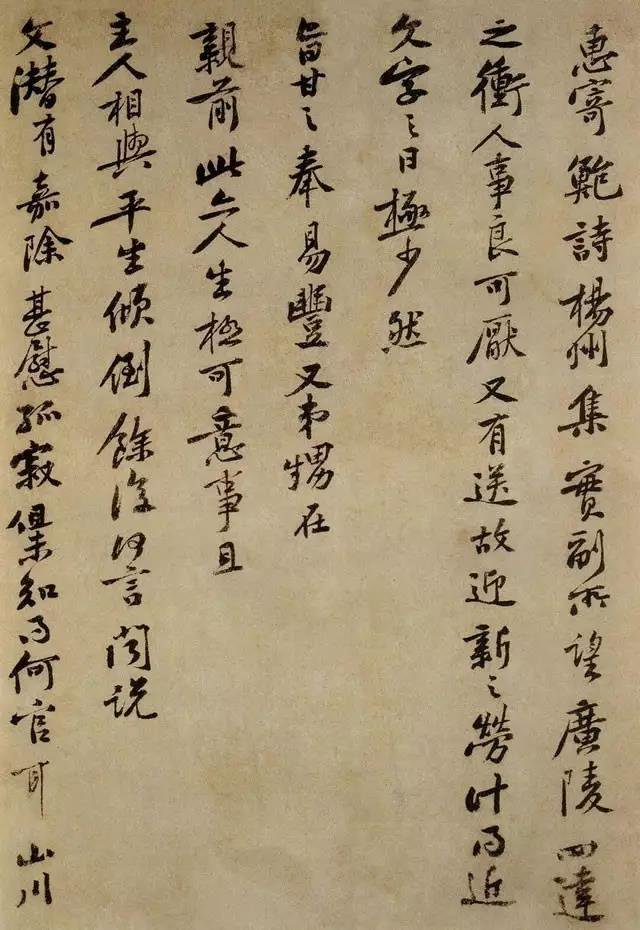 惠寄鮑詩楊州集實副所望廣陵四達
之衝人事良可厭又有送故迎新之勞計得近
文字之日極少然
旨甘之奉易豐又弟甥在
親前此亦人生極可意事且
主人相與平生傾倒餘復何言聞説
文潛有嘉除甚慰孤寂但未知得何官耳山川